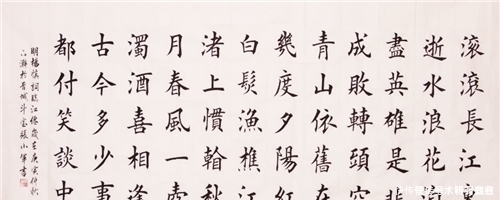 滚滚長江東
逝水浪花
盡英雄是非
成敗轉頭空
青山依舊在
幾度夕陽紅
白髮漁樵江
渚上慣看秋
月春風一
濁酒喜相逢
古今多少事
都付笑談中
明楊慎詞臨江仙歲庚寅仲秋
於晋城斗室張小軍書